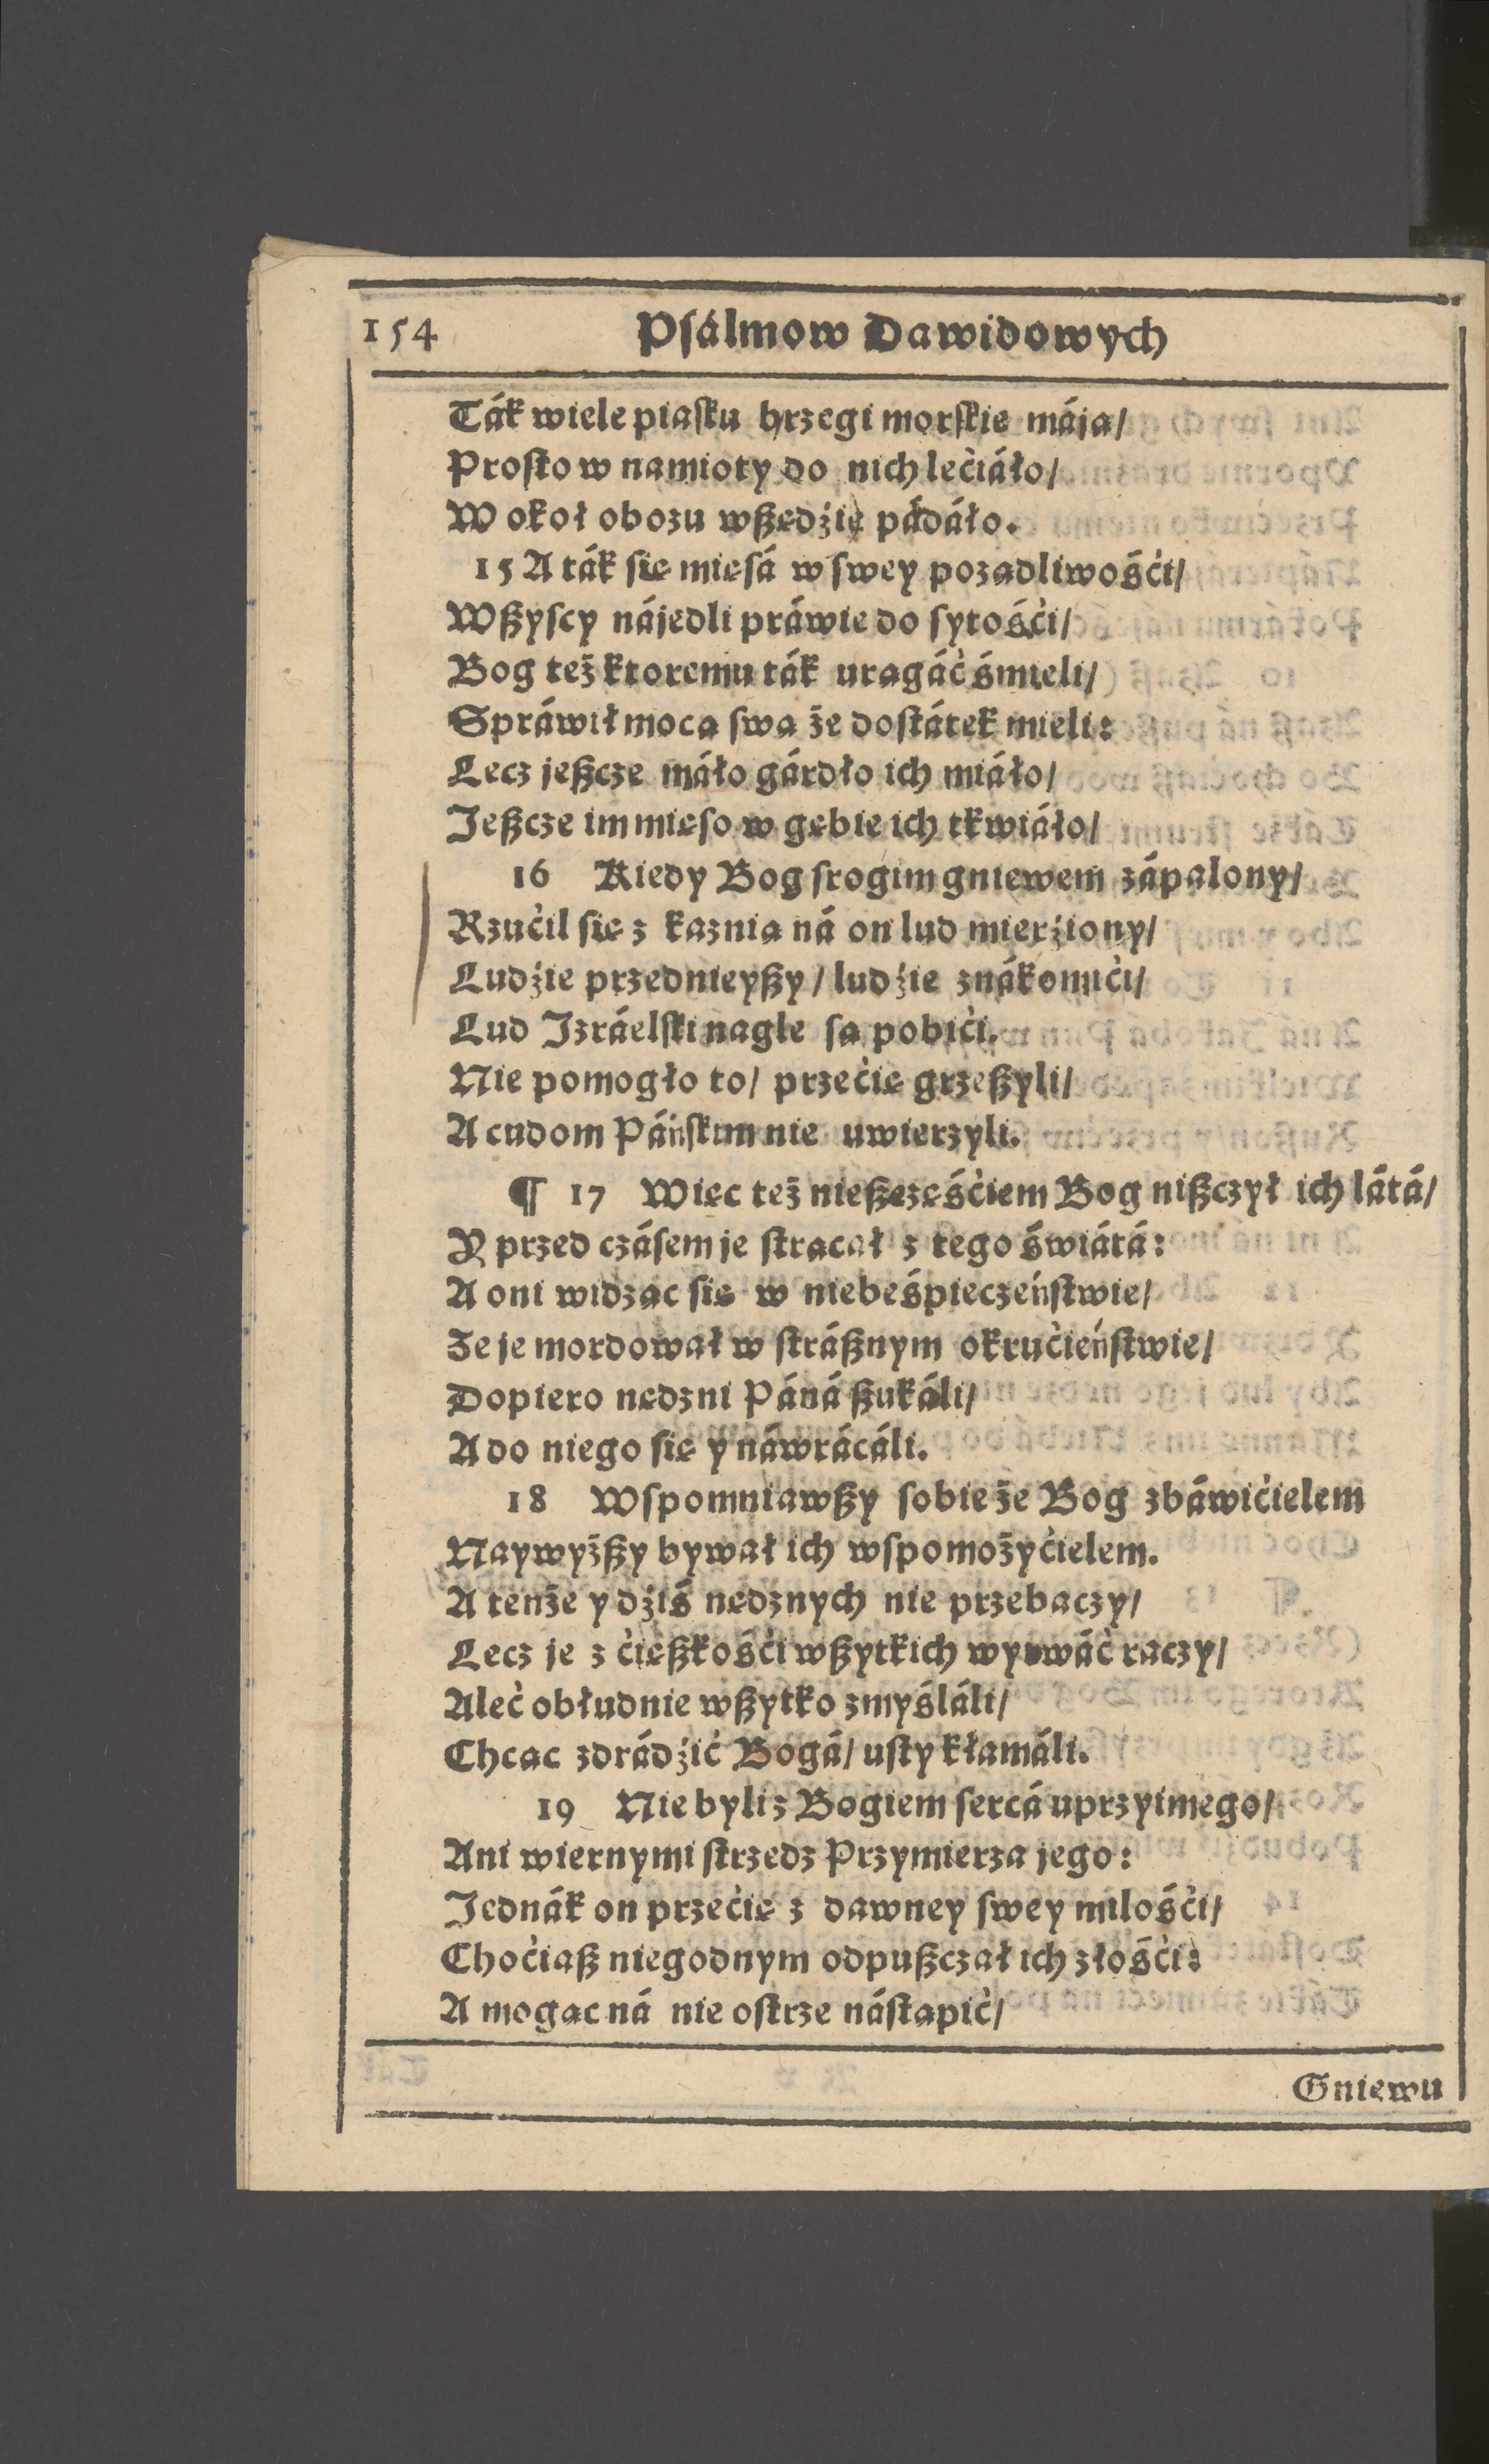 154 Psálmow Dawidowych
Ták wiele piasku brzegi morskie máją/
Prosto w namioty do nich lećiáło/
W okoł obozu wßędźie pádáło.
15 A ták się mięsá w swey pożądliwośći/
Wßyscy nájedli práwie do sytośći/
Bog też ktoremu ták urągáć śmieli/
Spráwił mocą swą że dostátek mieli:
Lecz jeßcze máło gárdło ich miáło/
Jeßcze im mięso w gębie ich tkwiáło/
16 Kiedy Bog srogim gniewem zápalony/
Rzućił się z kaznią ná on lud mierźiony/
Ludźie przednieyßy / ludźie znákomići/
Lud Izráelski nagle są pobići.
Nie pomogło to / przećię grzeßyli/
A cudom Páńskim nie uwierzyli.
¶ 17 Więc też nießczęśćiem Bog nißczył ich látá/
Y przed czásem je strącał z tego świátá:
A oni widząc się w niebeśpieczeństwie/
Że je mordował w stráßnym okrućieństwie/
Dopiero nędzni Páná ßukáli/
A do niego się y náwrácáli.
18 Wspomniawßy sobie że Bog zbáwićielem
Naywyżßy bywał ich wspomożyćielem.
A tenże y dźiś nędznych nie przebaczy/
Lecz je z ćięßkośći wßytkich wyrwáć raczy/
Aleć obłudnie wßytko zmyśláli/
Chcąc zdrádźić Bogá / usty kłamáli.
19 Nie byli z Bogiem sercá uprzyimego/
Ani wiernymi strzedz Przymierza jego:
Jednák on przećię z dawney swey miłośći/
Choćiaß niegodnym odpußczał ich złośći:
A mogąc ná nie ostrze nástąpić/
Gniewu